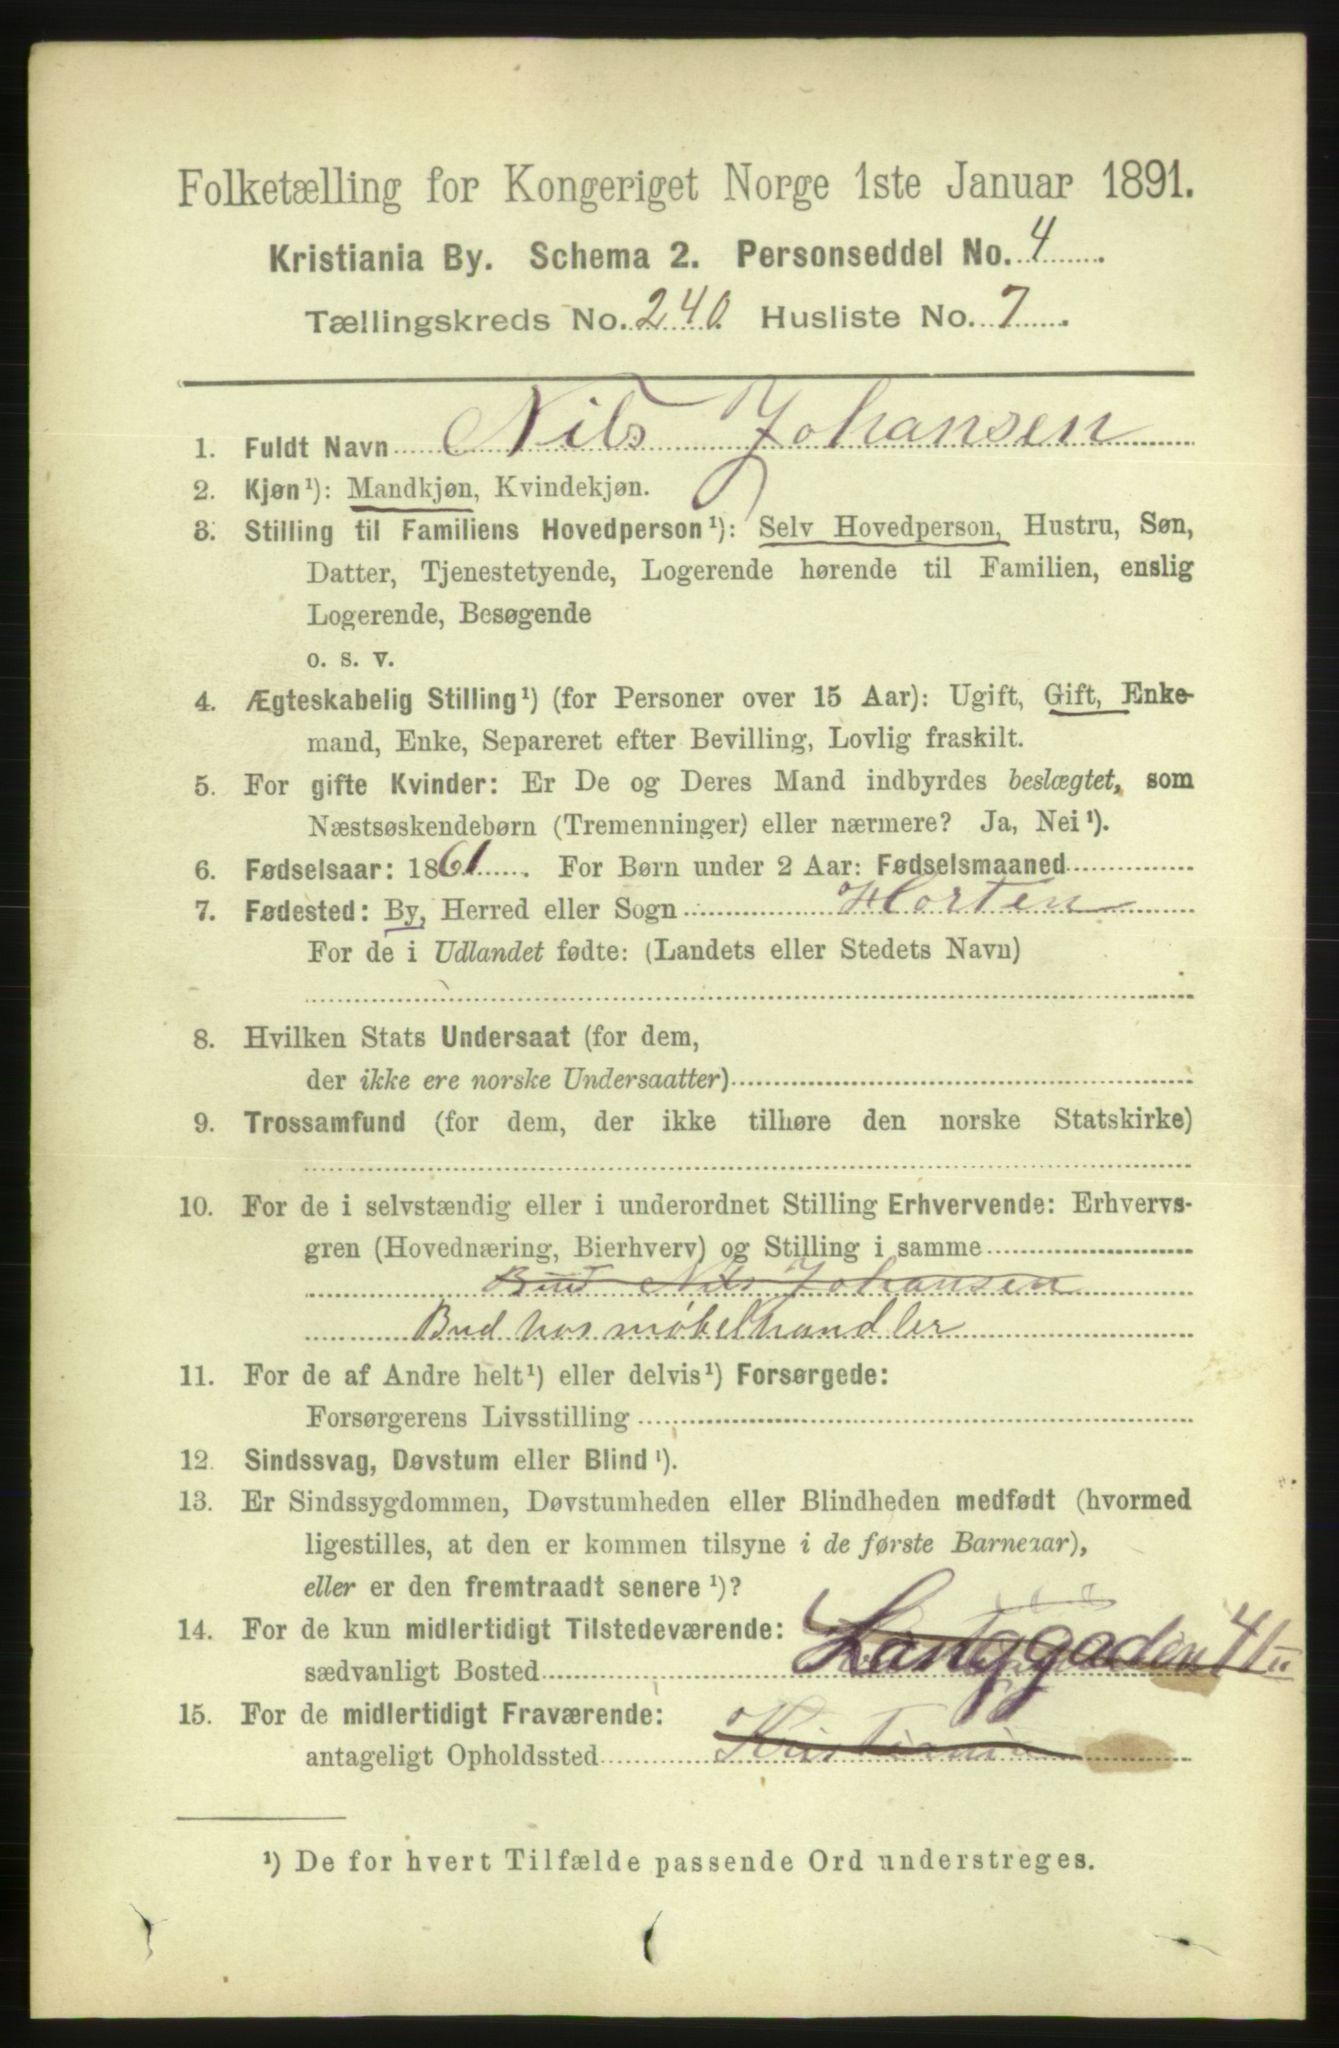 Folketælling for Kongeriget Norge 1ste Januar 1891.
Kristiania By. Schema 2. Personseddel No. 4
Tællingskreds No. 240 Husliste No. 7
1. Fuldt Navn Nils Johansen
2. Kjøn¹): Mandkjøn, Kvindekjøn.
3. Stilling til Familiens Hovedperson¹): Selv Hovedperson, Hustru, Søn,
Datter, Tjenestetyende, Logerende hørende til Familien, enslig
Logerende, Besøgende
o. s. v.
4. Ægteskabelig Stilling¹) (for Personer over 15 Aar): Ugift, Gift, Enke-
mand, Enke, Separeret efter Bevilling, Lovlig fraskilt.
5. For gifte Kvinder: Er De og Deres Mand indbyrdes beslægtet, som
Næstsøskendebørn (Tremenninger) eller nærmere? Ja, Nei¹).
6. Fødselsaar: 1861. For Børn under 2 Aar: Fødselsmaaned
7. Fødested: By, Herred eller Sogn Horten
For de i Udlandet fødte: (Landets eller Stedets Navn)
8. Hvilken Stats Undersaat (for dem,
der ikke ere norske Undersaatter)
9. Trossamfund (for dem, der ikke tilhøre den norske Statskirke)
10. For de i selvstændig eller i underordnet Stilling Erhvervende: Erhvervs-
gren (Hovednæring, Bierhverv) og Stilling i samme
Bud Nils Johansen
Bud hos møbelhandler
11. For de af Andre helt¹) eller delvis¹) Forsørgede:
Forsørgerens Livsstilling
12. Sindssvag, Døvstum eller Blind¹).
13. Er Sindssygdommen, Døvstumheden eller Blindheden medfødt (hvormed
ligestilles, at den er kommen tilsyne i de første Barneaar),
eller er den fremtraadt senere¹)?
14. For de kun midlertidigt Tilstedeværende:
sædvanligt Bosted Langgaden 41 II
15. For de midlertidigt Fraværende:
antageligt Opholdssted Kristiania
¹) De for hvert Tilfælde passende Ord understreges.